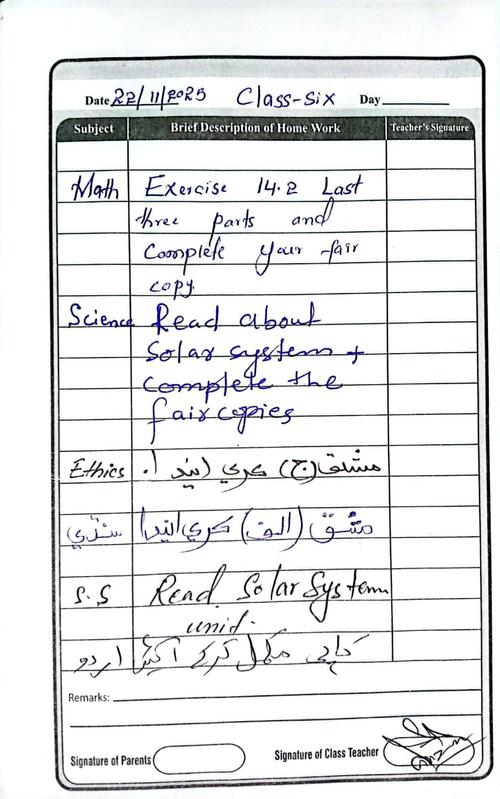 Date 22/11/2025 Class-Six Day
Subject Brief Description of Home Work Teacher's Signature
Math Exercise 14.2 Last
three parts and
Complete your fair
copy.
Science Read about
Solar system +
complete the
fair copies
Ethics مشق (ج) ڪري ايندا.
سنڌي مشق (الف) ڪري ايندا
S.S Read Solar System
unit.
اردو کاپی مکمل کرکے آئیں
Remarks:
Signature of Parents Signature of Class Teacher